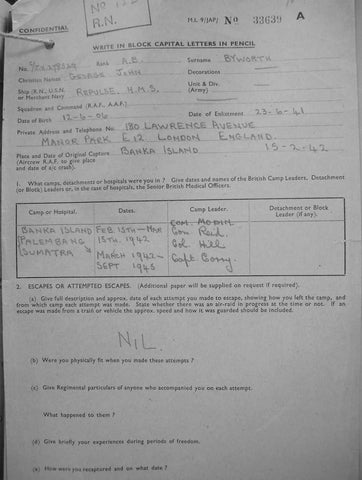 No
R.N.
CONFIDENTIAL
M.I. 9/JAP/ No 33639 A
WRITE IN BLOCK CAPITAL LETTERS IN PENCIL
No. Rank A.B. Surname BYWORTH
Christian Names GEORGE JOHN Decorations
Ship (R.N., U.S.N. or Merchant Navy REPULSE. H.M.S. Unit & Div. (Army)
Squadron and Command (R.A.F., A.A.F.)
Date of Birth 12-6-06 Date of Enlistment 23-6-41
Private Address and Telephone No. 180 LAWRENCE AVENUE
MANOR PARK E12. LONDON ENGLAND.
Place and Date of Original Capture BANKA ISLAND 15-2-42
(Aircrew R.A.F. to give place
and date of a/c crash).
1. What camps, detachments or hospitals were you in? Give dates and names of the British Camp Leaders, Detachment
(or Block) Leaders or, in the case of hospitals, the Senior British Medical Officers.
Camp or Hospital. Dates. Camp Leader. Detachment or Block Leader (if any).
BANKA ISLAND FEB. 15TH-MAR
PALEMBANG 15TH. 1942 Col. Hill
SUMATRA MARCH 1942- Capt
SEPT 1945
2. ESCAPES OR ATTEMPTED ESCAPES. (Additional paper will be supplied on request if required).
(a) Give full description and approx. date of each attempt you made to escape, showing how you left the camp, and
from which camp each attempt was made. State whether there was an air-raid in progress at the time or not. If an
escape was made from a train or vehicle the approx. speed and how it was guarded should be included.
NIL.
(b) Were you physically fit when you made these attempts?
(c) Give Regimental particulars of anyone who accompanied you on each attempt.
What happened to them?
(d) Give briefly your experiences during periods of freedom.
(e) How were you recaptured and on what date?